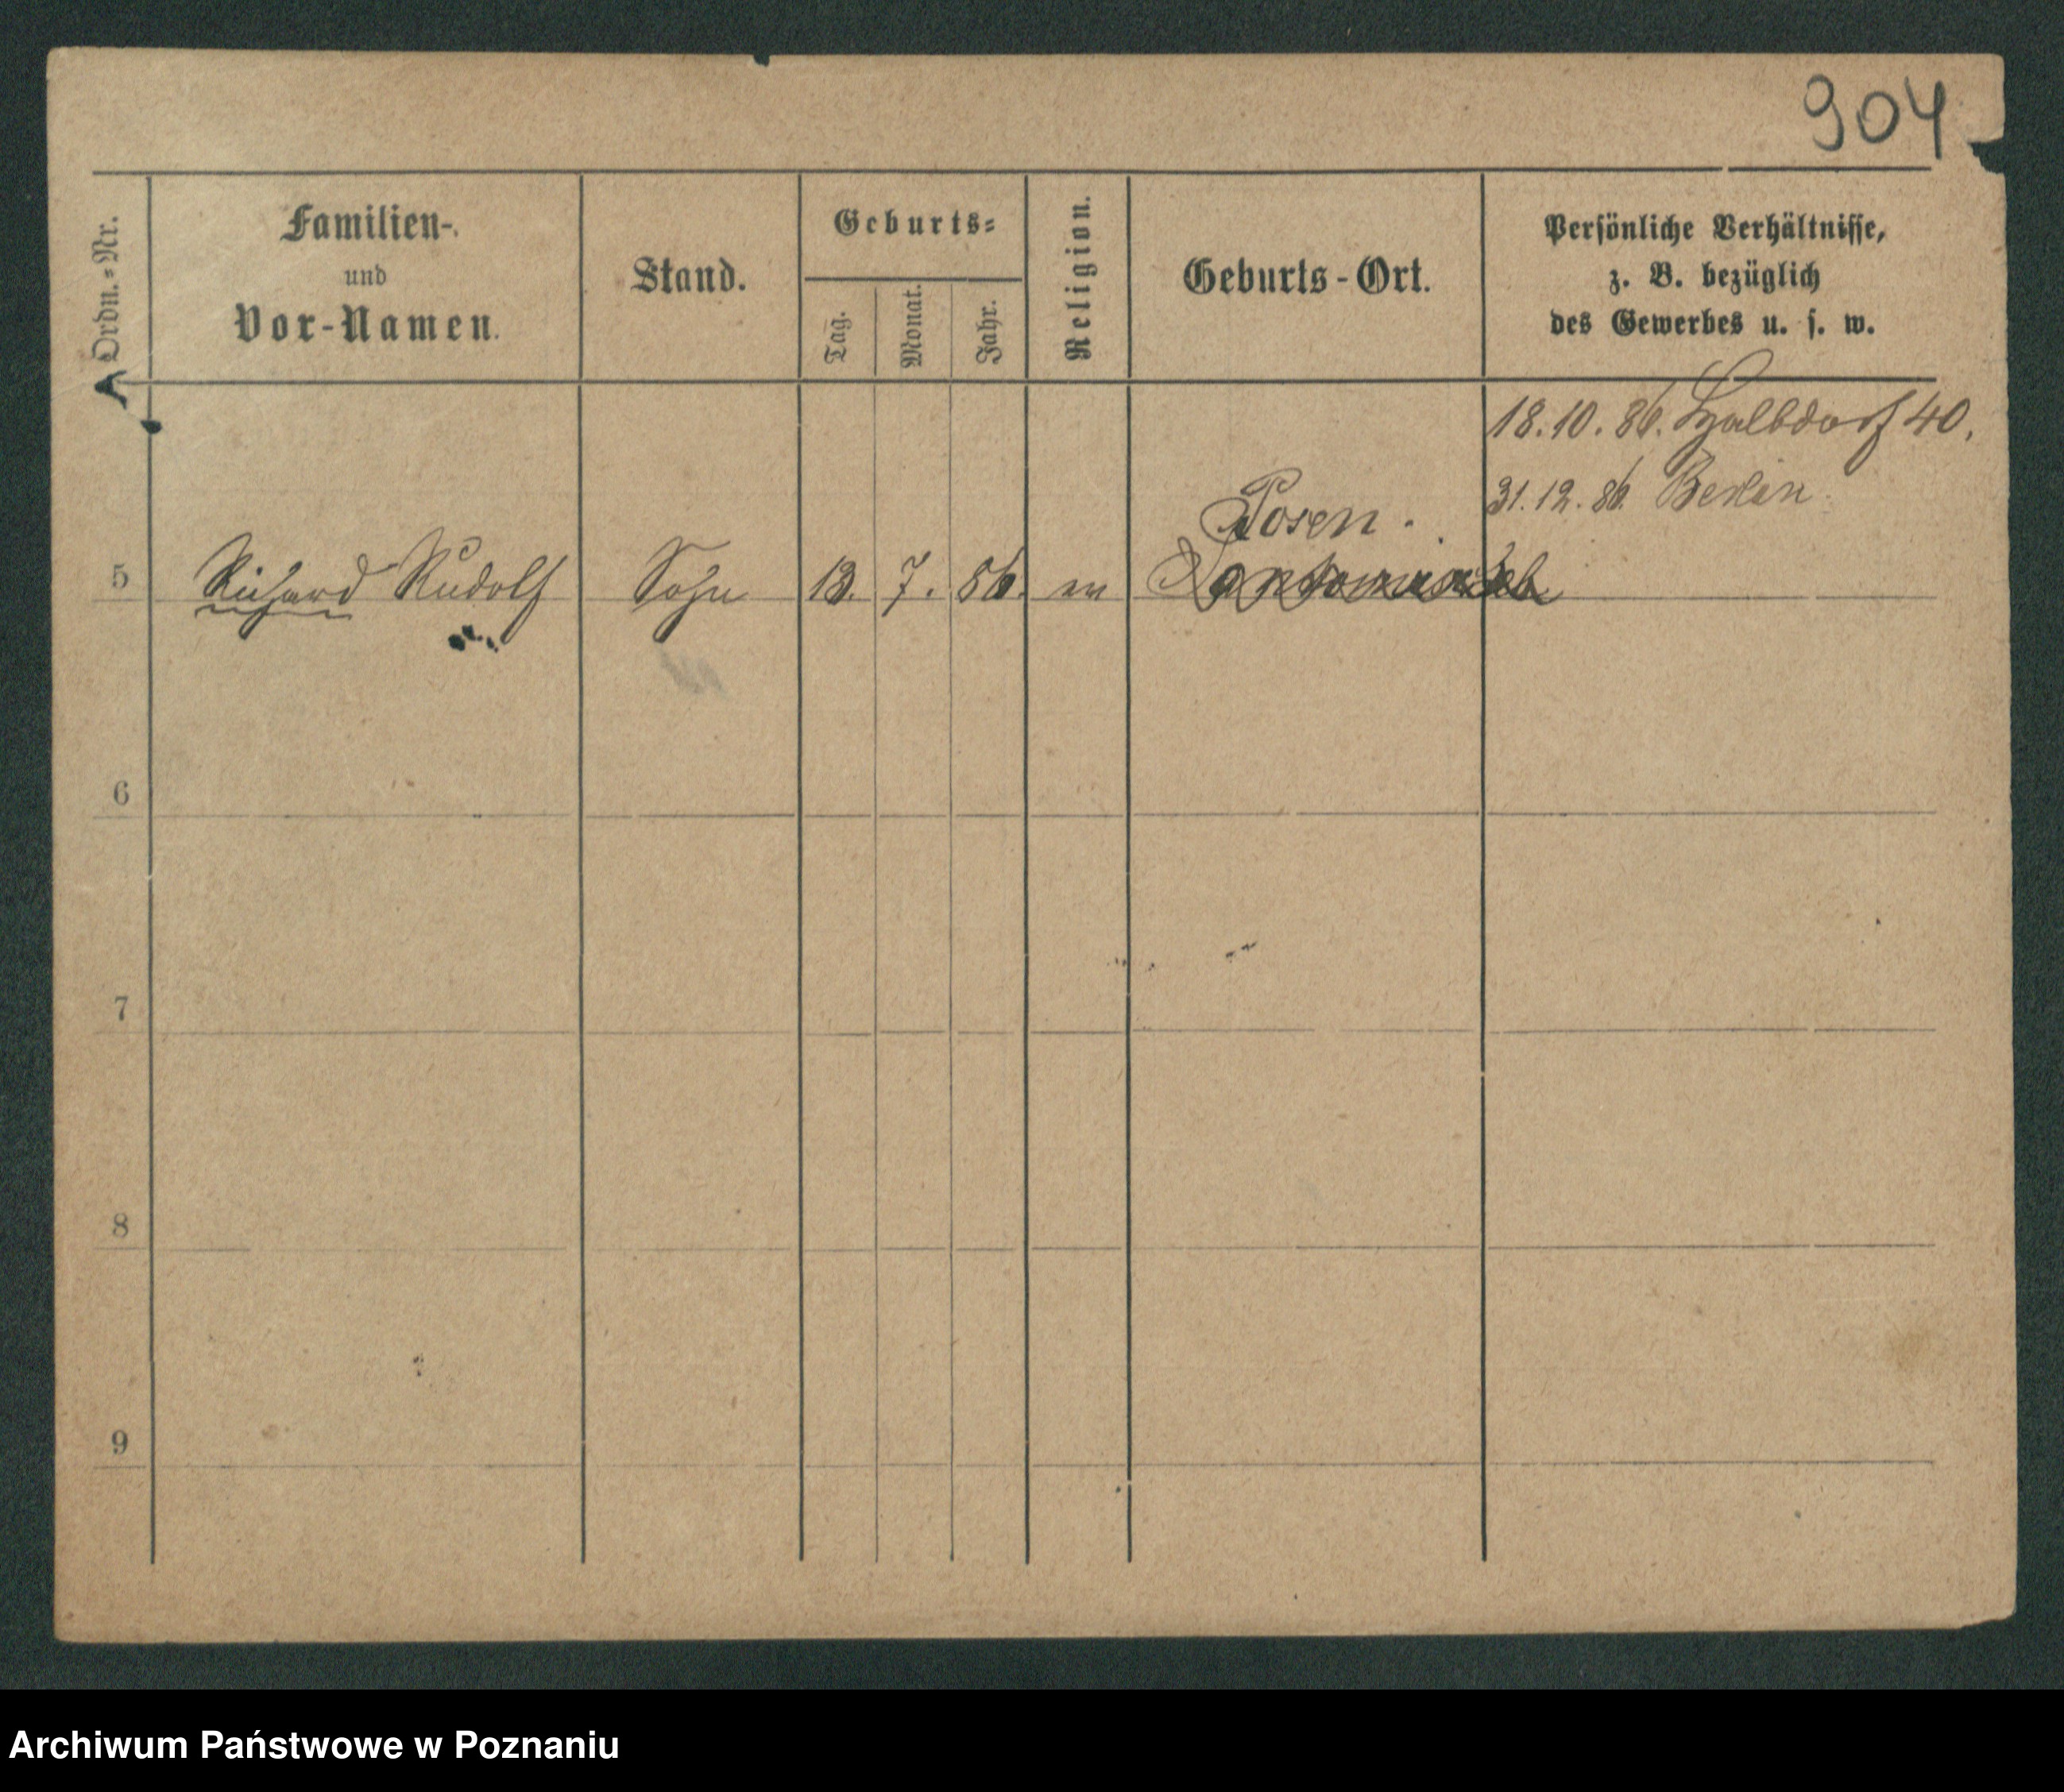 904
Ordn.=Nr.
Familien-
und
Vor-Namen.
Stand.
Geburts=
Tag.
Monat.
Jahr.
Religion.
Geburts-Ort.
Persönliche Verhältnisse,
z. B. bezüglich
des Gewerbes u. s. w.
18.10.86. Halbdorf 40.
31.12.86. Berlin.
Posen.
5 Richard Rudolf Sohn 13. 7. 86.
6
7
8
9
Archiwum Państwowe w Poznaniu